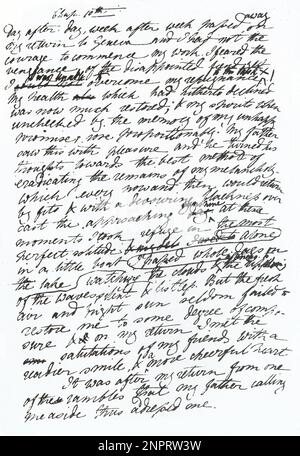 Chap. 10th
Day after day, week after week passed away
my return to Geneva and I had not the
courage to commence my work. I feared the
vengeance of the disappointed fiend yet
I overcome my repugnance
My health which had hitherto declined
was now much restored; & my spirits when
unchecked by the memory of my unhappy
promise, rose proportionably. My father
saw this with pleasure and he turned his
thoughts towards the best method of
eradicating the remains of my melancholy
which every now and then would return
by fits & with a devouring blackness over
cast the approaching At these
moments I took refuge in the most
perfect solitude. alone
in a little boat I passed whole days on
the lake watching the clouds &
of the waves silent & listless. But the fresh
air and bright sun seldom failed to
restore me to some degree of compo
sure & on my return I met the
salutations of my friends with a
readier smile & a more cheerful heart
It was after my return from one
of these rambles that my father calling
me aside thus adressed me.
alamy
Image ID: 2NPRW3W
www.alamy.com